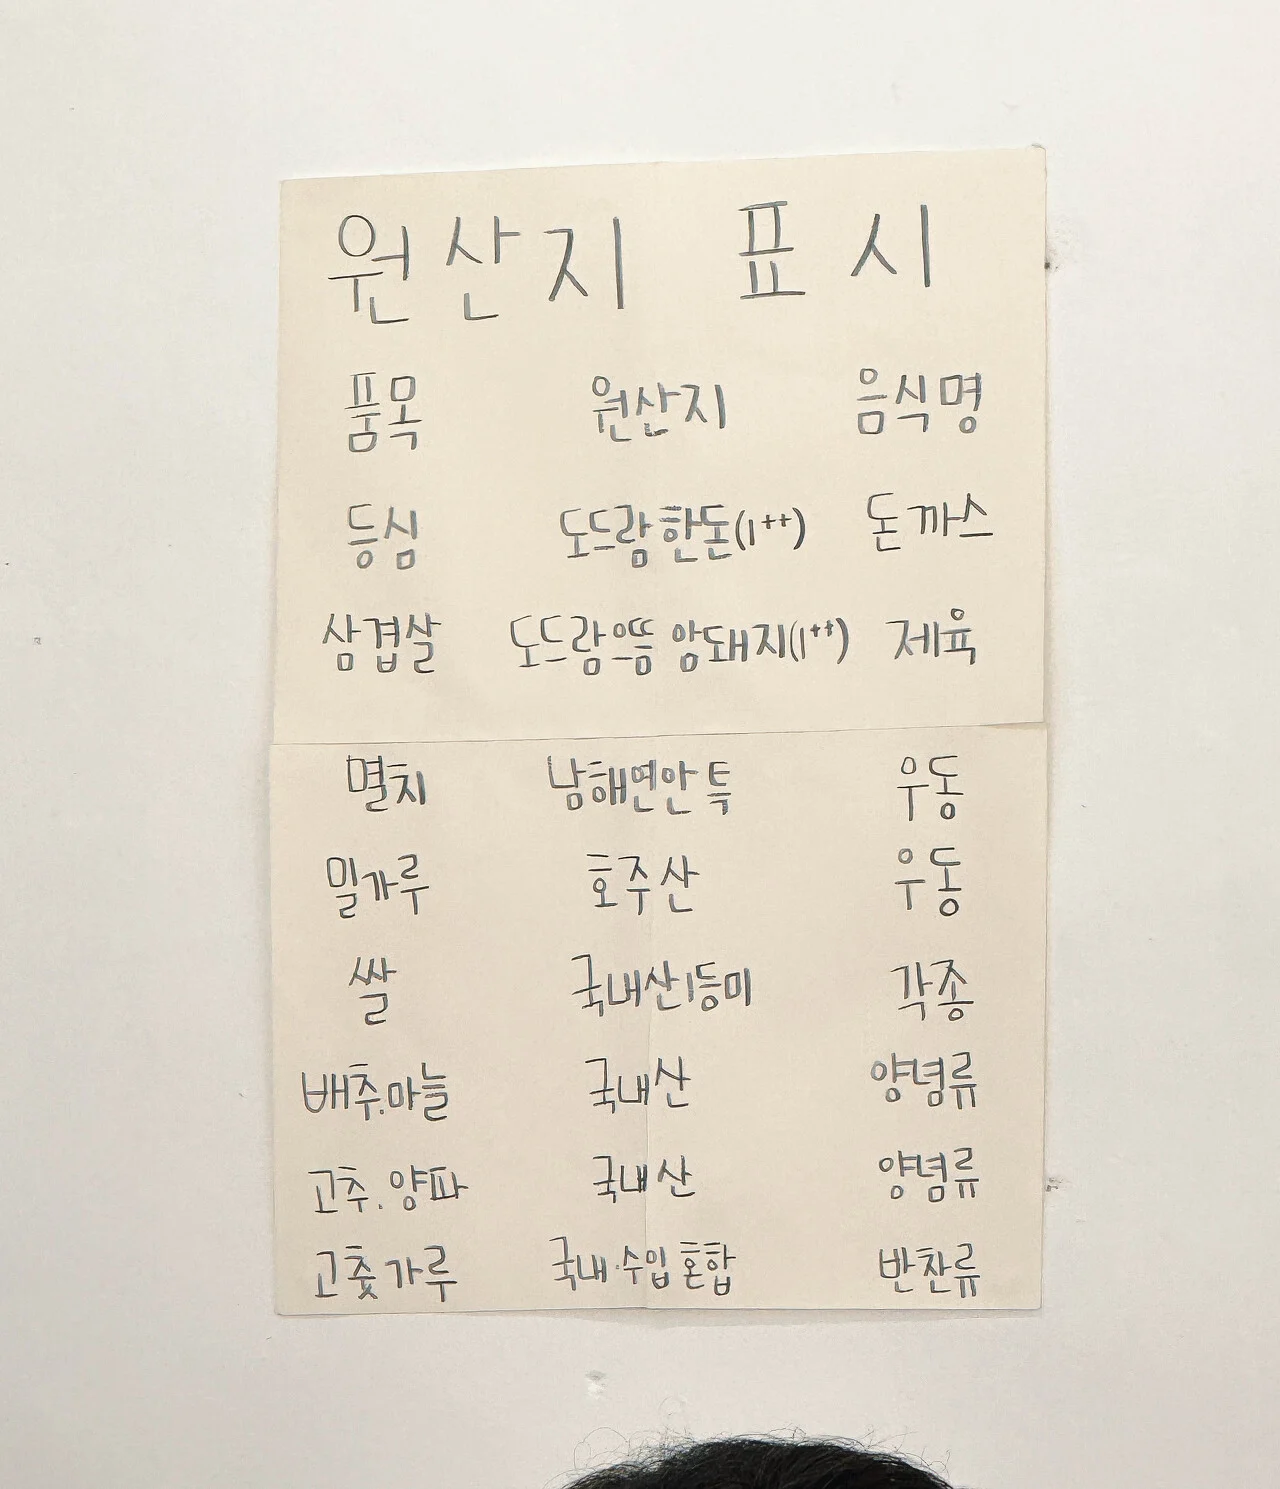 원산지 표시
품목 원산지 음식명
등심 도드람한돈(1++) 돈까스
삼겹살 도드람으뜸 암돼지(1++) 제육
멸치 남해연안 특 우동
밀가루 호주산 우동
쌀 국내산1등미 각종
배추.마늘 국내산 양념류
고추.양파 국내산 양념류
고춧가루 국내·수입 혼합 반찬류